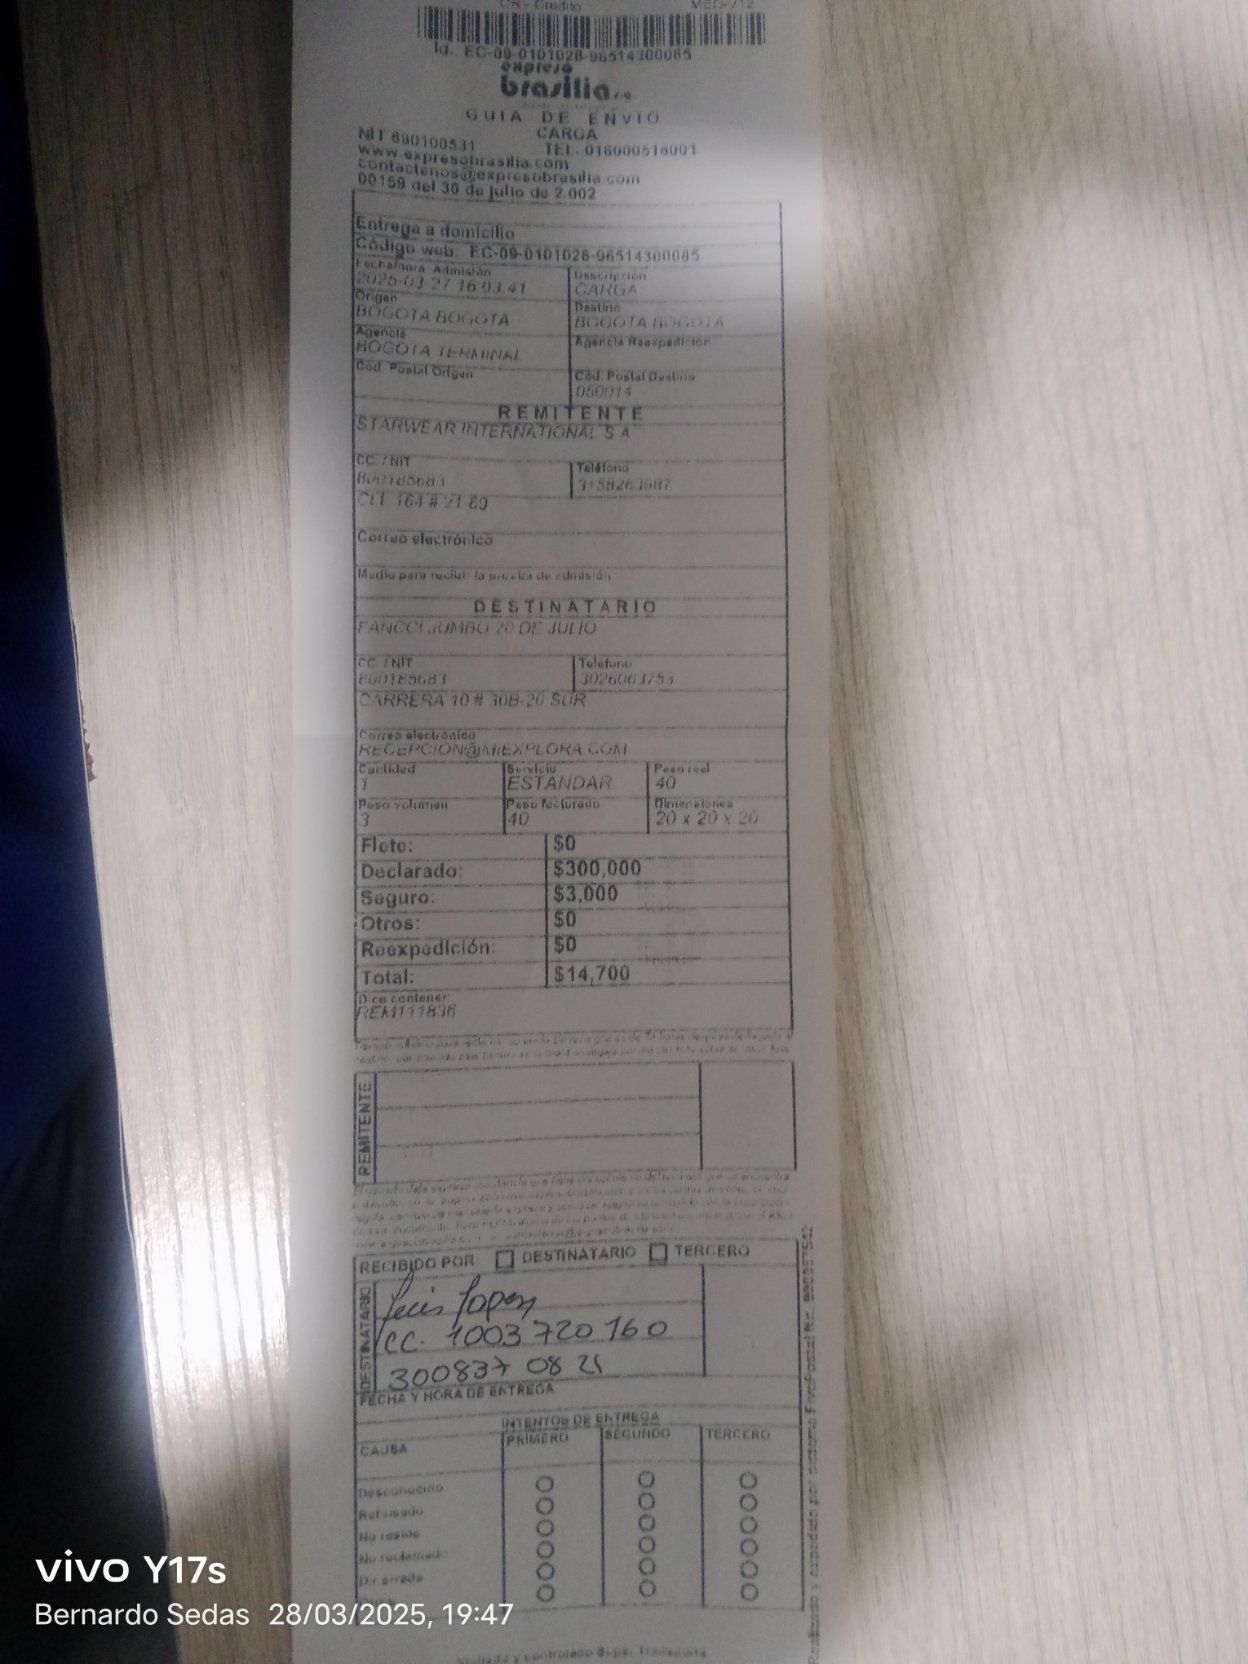 CR - Crédito
Id. EC-09-0101028-96514300085
expreso
brasilia s.a.
GUIA DE ENVIO
CARGA
NIT 890100531 TEL. 018000516001
www.expresobrasilia.com
contactenos@expresobrasilia.com
00159 del 30 de julio de 2.002
Entrega a domicilio
Código web: EC-09-0101028-96514300085
Fecha/hora Admisión Descripción
2025-03-27 16:03:41 CARGA
Origen Destino
BOGOTA BOGOTA BOGOTA BOGOTA
Agencia Agencia Reexpedición
BOGOTA TERMINAL
Cód. Postal Origen Cód. Postal Destino
050014
REMITENTE
STARWEAR INTERNATIONAL S A
CC. / NIT Teléfono
800185683 3158263987
CLL 164 # 21 60
Correo electrónico
Medio para recibir la prueba de admisión
DESTINATARIO
FANCCI JUMBO 20 DE JULIO
CC. / NIT Teléfono
800185683 3026063753
CARRERA 10 # 30B-20 SUR
Correo electrónico
RECEPCION@MIEXPLORA.COM
Cantidad Servicio Peso real
1 ESTANDAR 40
Peso volumen Peso facturado Dimensiones
3 40 20 x 20 x 20
Flete: $0
Declarado: $300,000
Seguro: $3,000
Otros: $0
Reexpedición: $0
Total: $14,700
Dice contener:
REM111836
REMITENTE
RECIBIDO POR DESTINATARIO TERCERO
DESTINATARIO
Luis Lopez
CC. 1003 720 160
300837 08 21
FECHA Y HORA DE ENTREGA
INTENTOS DE ENTREGA
CAUSA PRIMERO SEGUNDO TERCERO
Desconocido
Rehusado
No reside
No reclamado
Dir errada
vivo Y17s
Bernardo Sedas 28/03/2025, 19:47